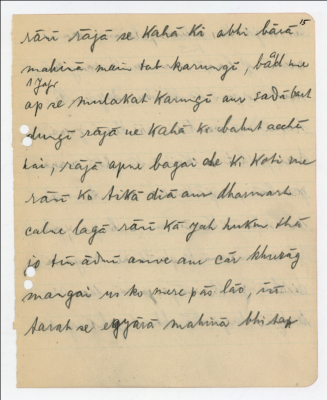 15
rānī rājā se kahā ki abhi bārā
mahinā main tat karungī, bād me
ap se mulakat karungī aur sadābert
dungī rājā ne kahā ke bahut acchā
hai, rājā apne bagai che ki koti me
rānī ko tikā diā aur dharmash
calne lagā rānī kā yah hukm thā
jo tīn ādmī awe aur cār khurāg
mangai us ko mere pās lāo, isī
tarah se egyārā mahinā bhi tap